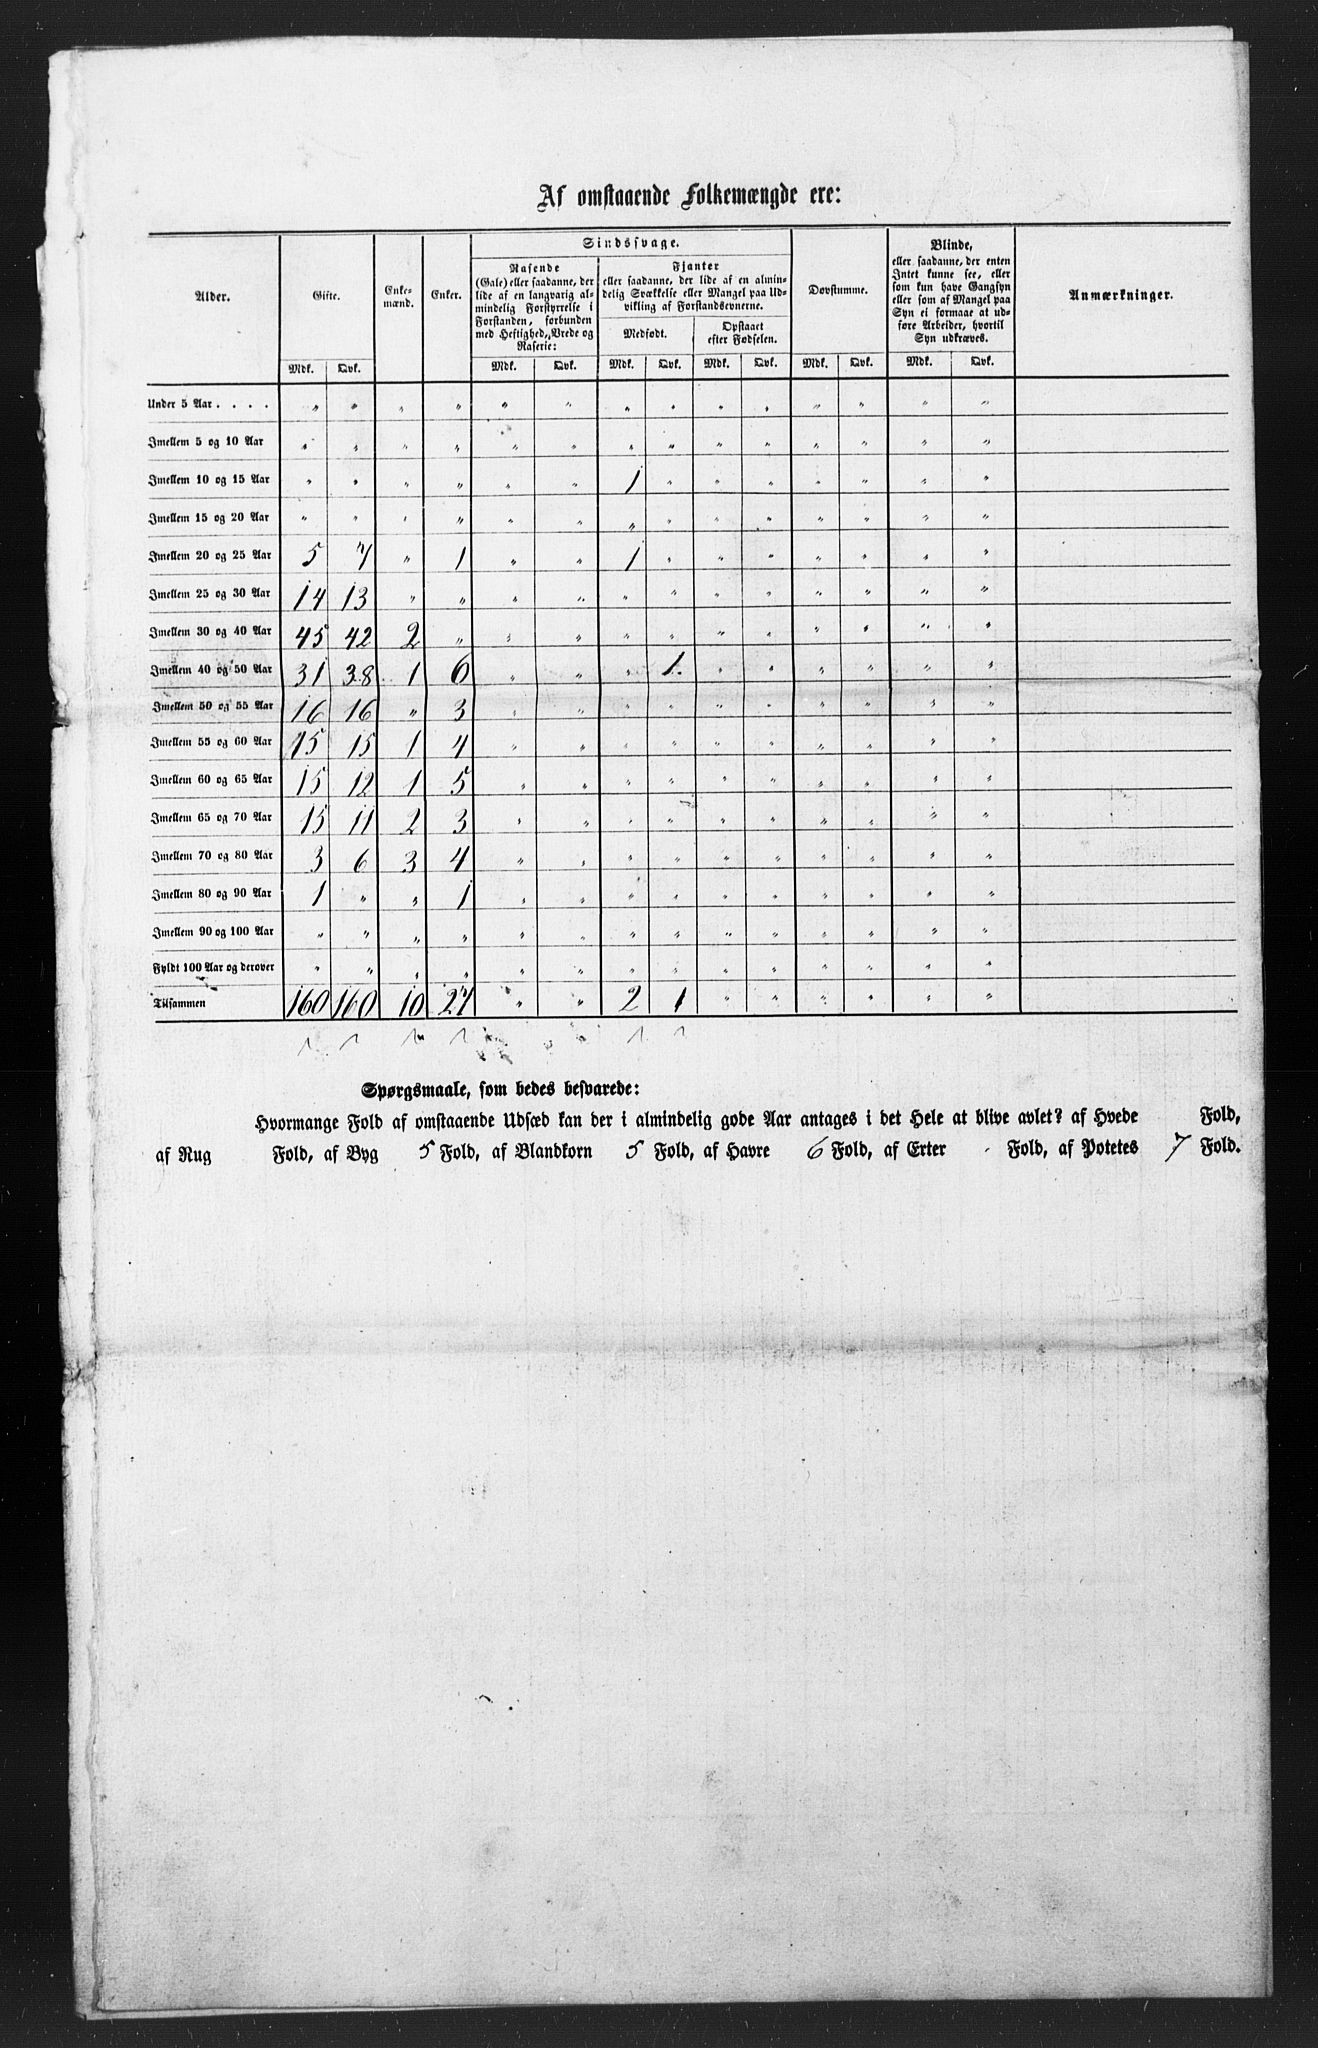 Af omstaaende Folkemængde ere:
Alder. Gifte. Enke-mænd. Enker. Sindssvage. Døvstumme. Blinde, Anmærkninger.
Rasende
(Gale) eller saadanne, der
lide af en langvarig al-
mindelig Forstyrrelse i
Forstanden, forbunden
med Heftighed, Vrede og
Raserie:
Fjanter
eller saadanne, der lide af en almin-
delig Svækkelse eller Mangel paa Ud-
vikling af Forstandsevnerne.
Medfødt.
Opstaaet
efter Fødselen.
eller saadanne, der enten
Intet kunne see, eller
som kun have Gangsyn
eller som af Mangel paa
Syn ei formaae at ud-
føre Arbeider, hvortil
Syn udkræves.
Mdk. Qvk. Mdk. Qvk. Mdk. Qvk. Mdk. Qvk. Mdk. Qvk. Mdk. Qvk.
Under 5 Aar . . . . " " " " " " " " " " " " " "
Imellem 5 og 10 Aar " " " " " " " " " " " " " "
Imellem 10 og 15 Aar " " " " " " 1 " " " " " " "
Imellem 15 og 20 Aar " " " " " " " " " " " " " "
Imellem 20 og 25 Aar 5 7 " 1 " " 1 " " " " " " "
Imellem 25 og 30 Aar 14 13 " " " " " " " " " " " "
Imellem 30 og 40 Aar 45 42 2 " " " " " " " " " " "
Imellem 40 og 50 Aar 31 38 1 6 " " " 1. " " " " " "
Imellem 50 og 55 Aar 16 16 " 3 " " " " " " " " " "
Imellem 55 og 60 Aar 15 15 1 4 " " " " " " " " " "
Imellem 60 og 65 Aar 15 12 1 5 " " " " " " " " " "
Imellem 65 og 70 Aar 15 11 2 3 " " " " " " " " " "
Imellem 70 og 80 Aar 3 6 3 4 " " " " " " " " " "
Imellem 80 og 90 Aar 1 " " 1 " " " " " " " " " "
Imellem 90 og 100 Aar " " " " " " " " " " " " " "
Fyldt 100 Aar og derover " " " " " " " " " " " " " "
Tilsammen 160 160 10 27 " " 2 1 " " " " " "
Spørgsmaale, som bedes besvarede:
Hvormange Fold af omstaaende Udsæd kan der i almindelig gode Aar antages i det Hele at blive avlet? af Hvede Fold,
af Rug Fold, af Byg 5 Fold, af Blandkorn 5 Fold, af Havre 6 Fold, af Erter Fold, af Potetes 7 Fold.